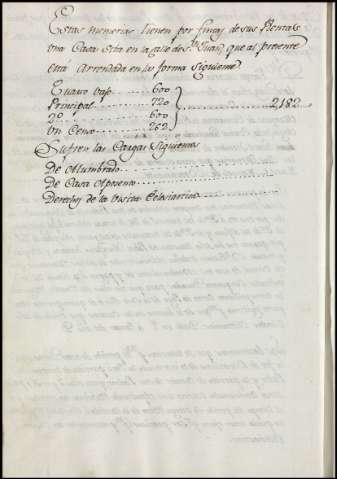 Estas memorias tienen por fincas de sus Rentas
Una Casa sita en la calle de Sn. Juan, que al presente
esta Arrendada en la forma siguiente
Quarto bajo....... 600
Principal....... 720 ....... 2182
2º....... 600
Un Censo....... 262
Sufren las Cargas siguientes
De Alumbrado.......
De Casa Aposento.......
Derechos de la Visita Eclesiastica.......